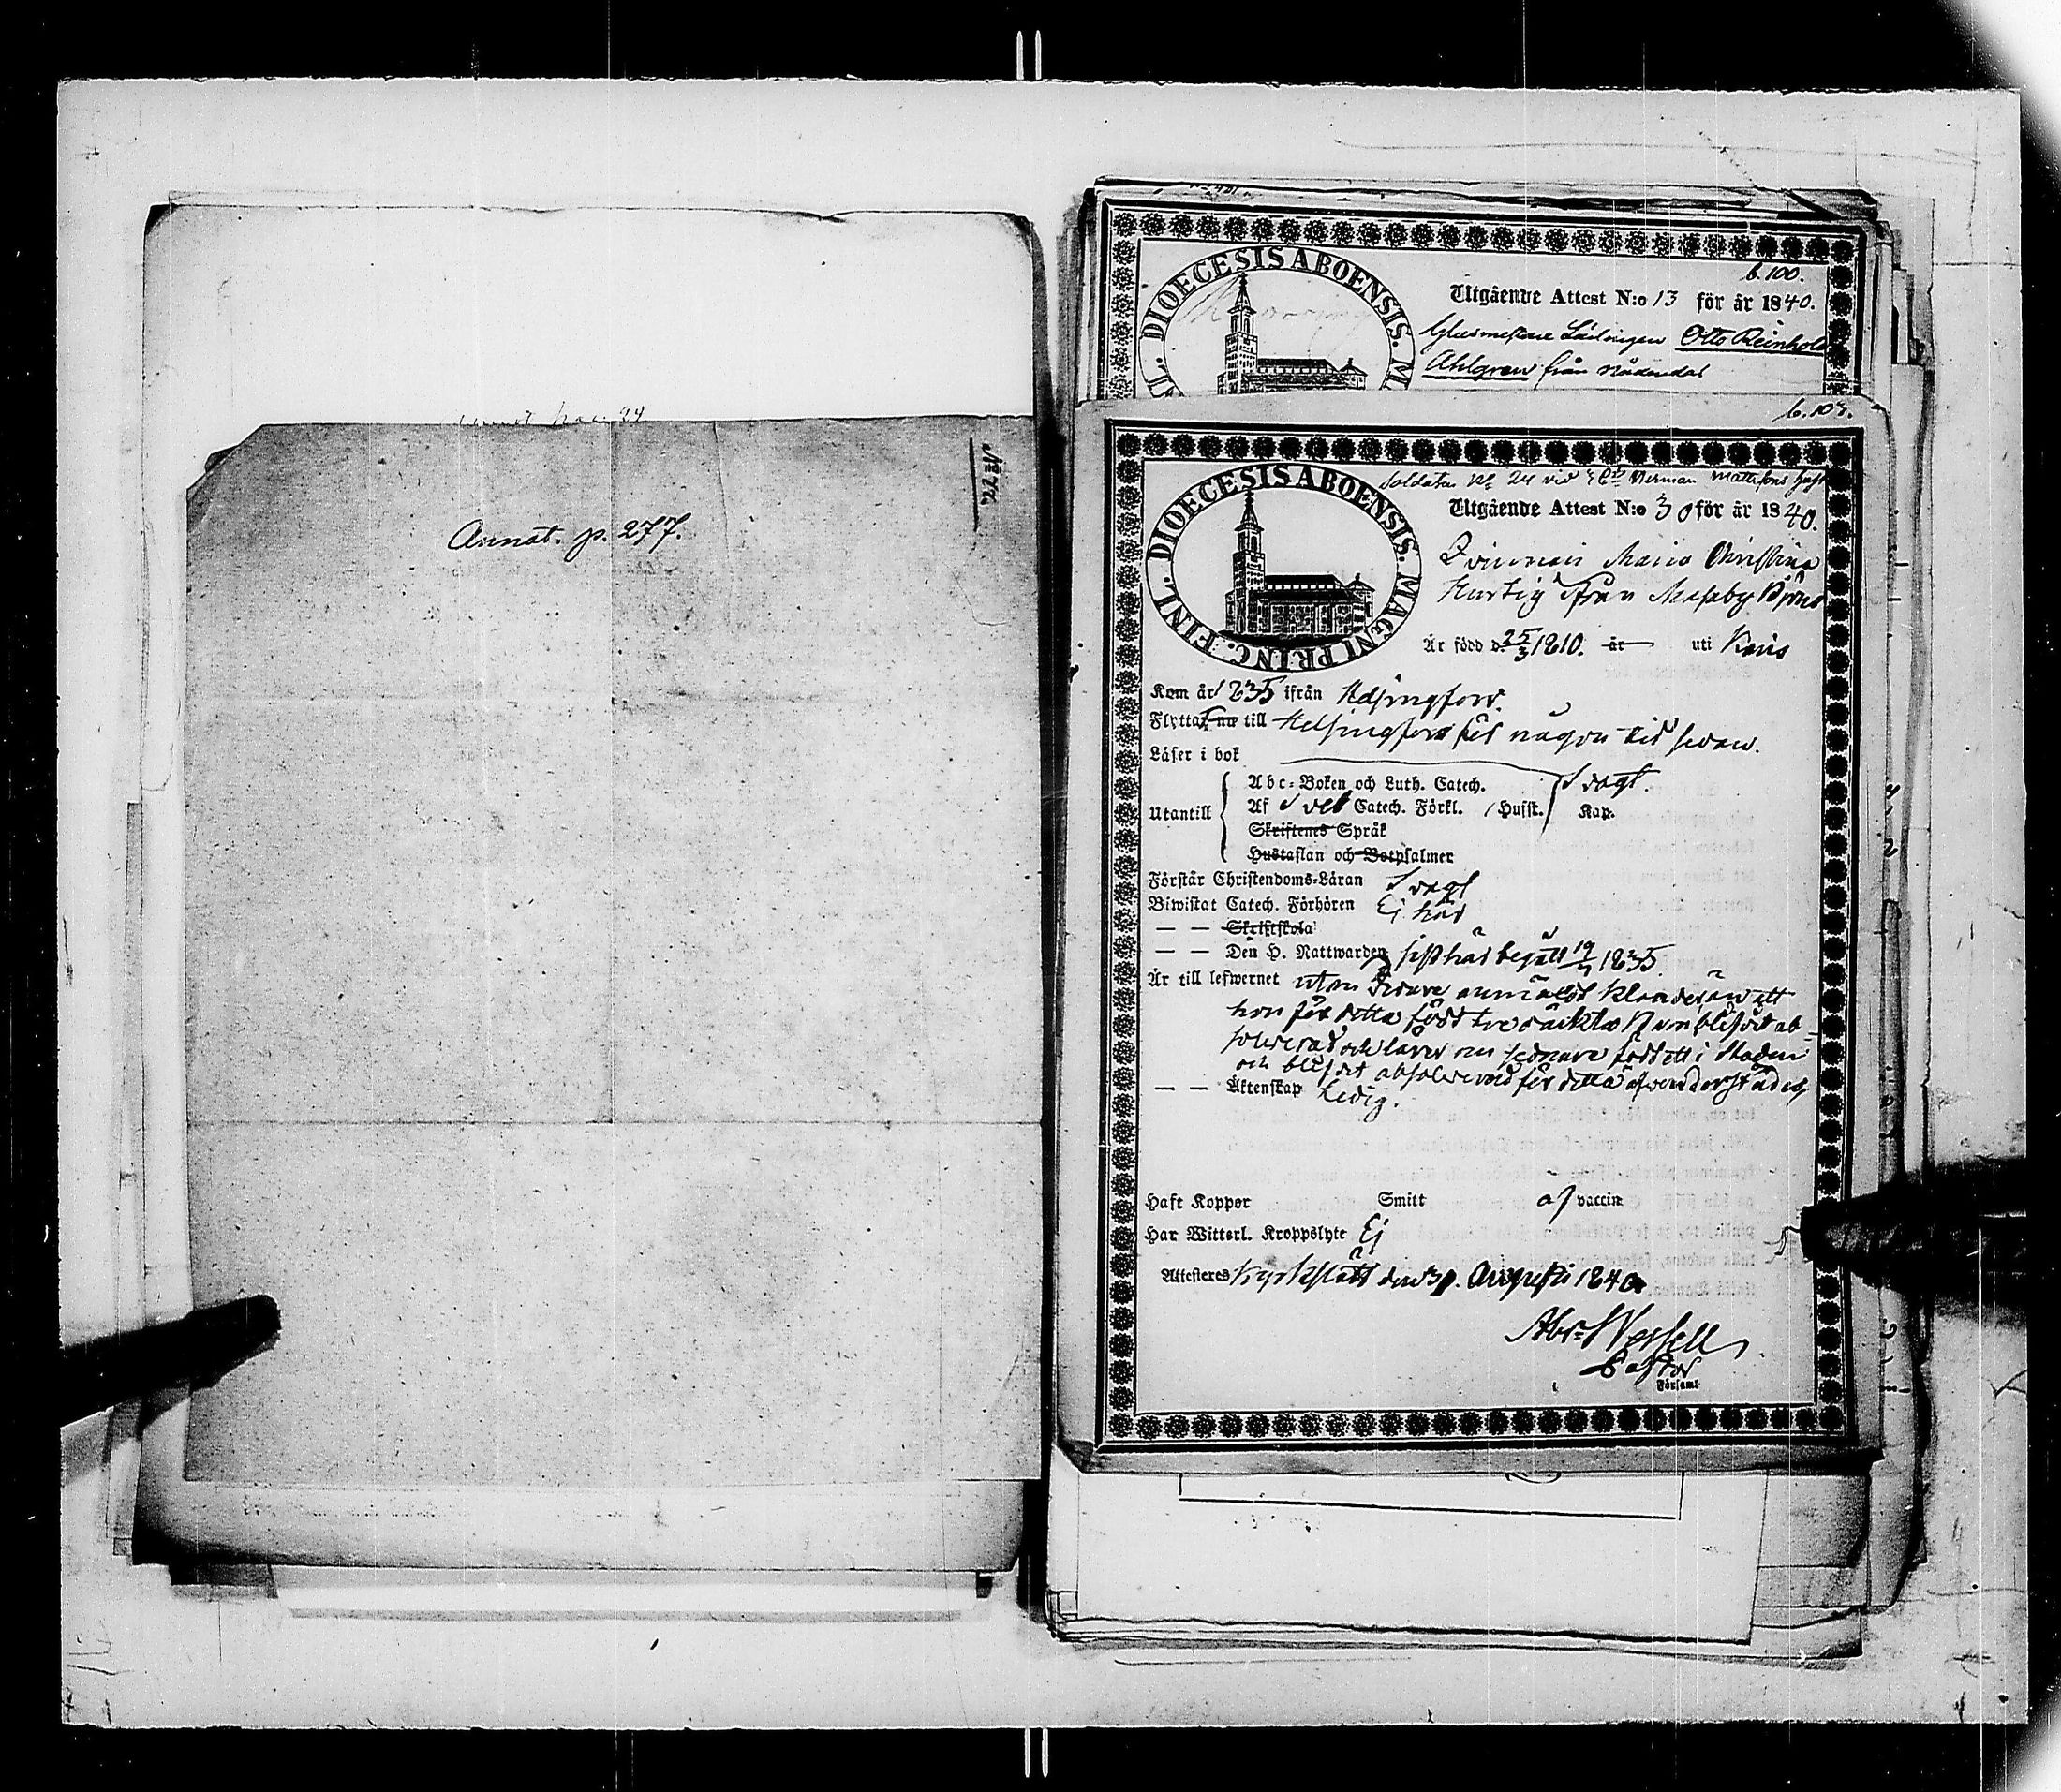 Annot. p. 277.
DIOECESIS ABOENSIS. M
6.100.
Utgående Attest N:o 13 för år 1840.
Glasmästare Lärlingen Otto Reinhold
Ahlgren från Nådendal
6.103.
DIOECESIS ABOENSIS. MAGNI PRINC. FINL.
Soldaten No 24 vid Herman Mattssons
Utgående Attest N:o 30 för år 1840.
Qvinnan Maria Christina
Hurtig från Masaby Björns
Är född d. 25/3 1810. år uti Karis
Kom år 1835 ifrån Helsingfors.
Flyttat nu till Helsingfors för någon tid sedan.
Läser i bok
Abc-Boken och Luth. Catech. Svagt.
Utantill Af Sveb Catech. Förkl. Husst. Kap.
Skriftenes Språk
Hustaflan och Botpsalmer
Förstår Christendoms-Läran Svagt
Biwistat Catech. Förhören Ej här
— — Skriftskola
— — Den H. Nattwarden sist här begått 19/7 1835.
Är till lefwernet utan klander än att
hon för detta födt tre oäkta barn blifvit ab-
solverad och lärer nu sednare födt ett i Staden
och blifvit absolverad för detta äfven derstädes
— — Äktenskap Ledig.
Haft Koppor Smitt af vaccin
Har Witterl. Kroppslyte Ej
Attesteras Kyrkslätt den 30. Augusti 1840
Pastor
Församl